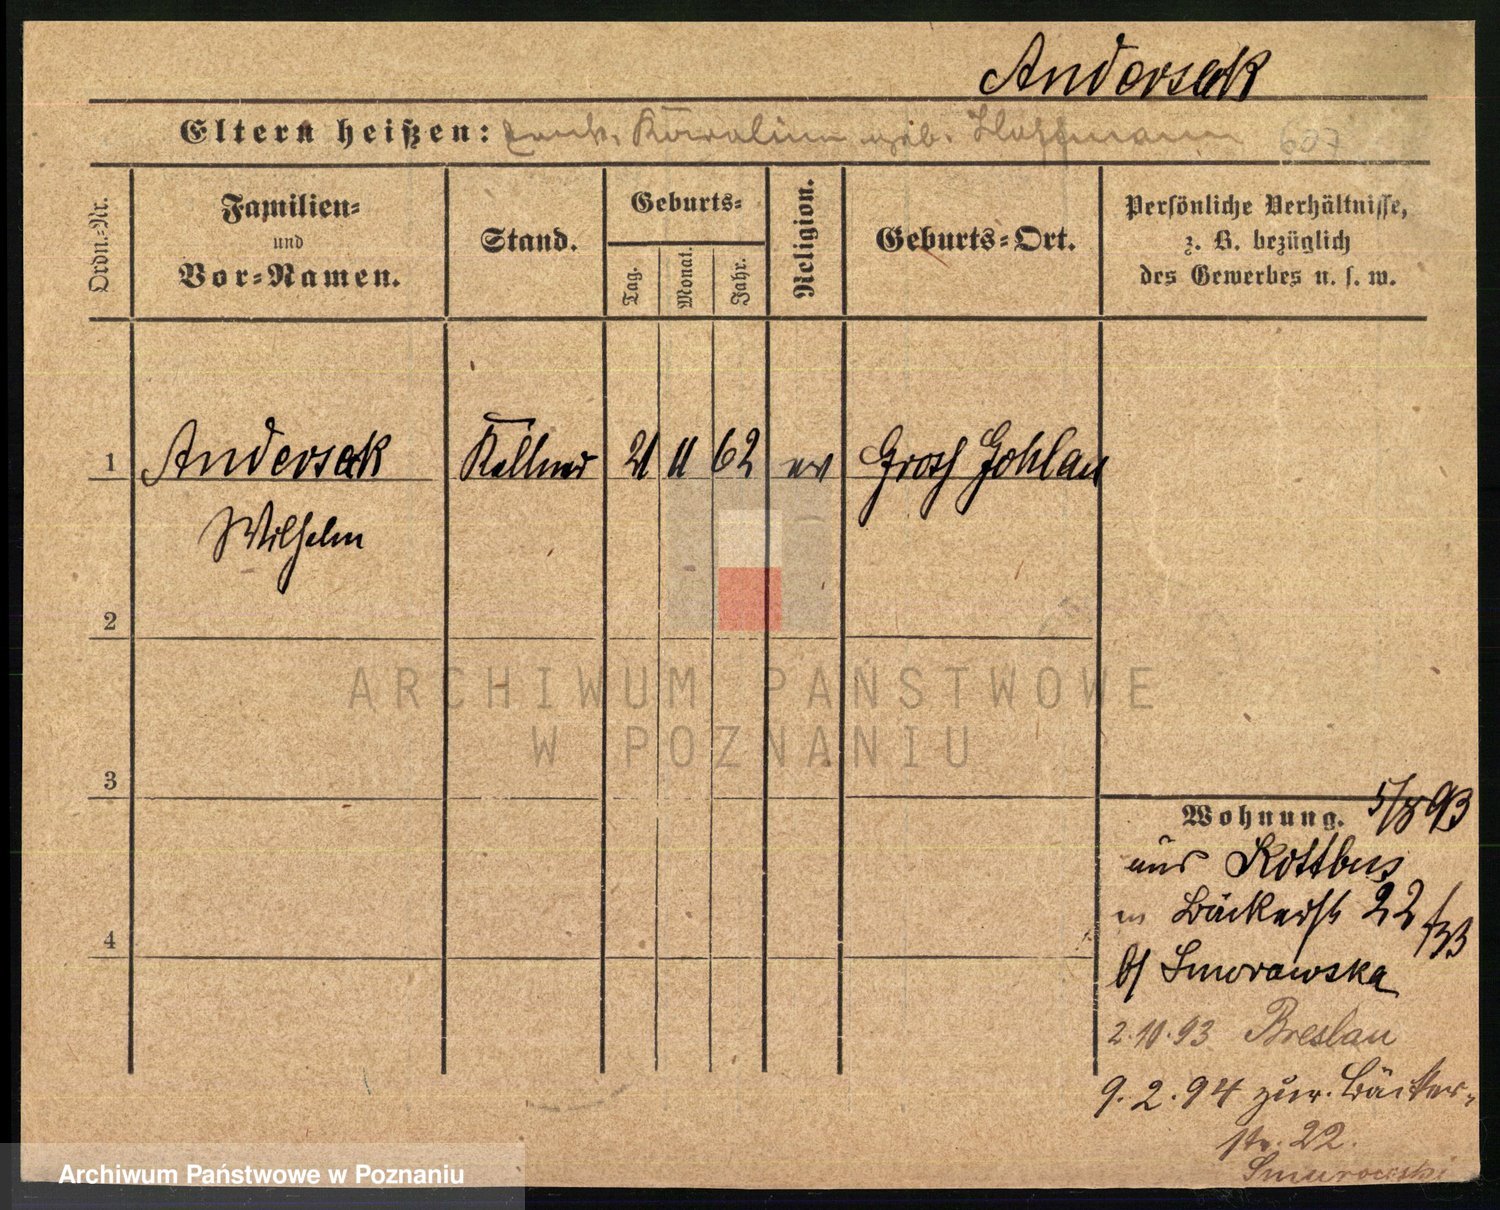 Anderseck
Eltern heißen: Karoline geb. Hoffmann 607
Ordn.-Nr.
Familien-
und
Vor-Namen.
Stand.
Geburts-
Tag.
Monat.
Jahr.
Religion.
Geburts-Ort.
Persönliche Verhältnisse,
z. B. bezüglich
des Gewerbes u. s. w.
1 Anderseck Kellner 21 11 62 ev Grosch Gohlau
Wilhelm
2
ARCHIWUM PAŃSTWOWE
W POZNANIU
3
Wohnung. 5/8 93
aus Kottbus
in Bäckerstr 22
b/ Smorawska
4
2.10.93 Breslau
9.2.94 zur. Bäcker-
str. 22.
Smurowski
Archiwum Państwowe w Poznaniu